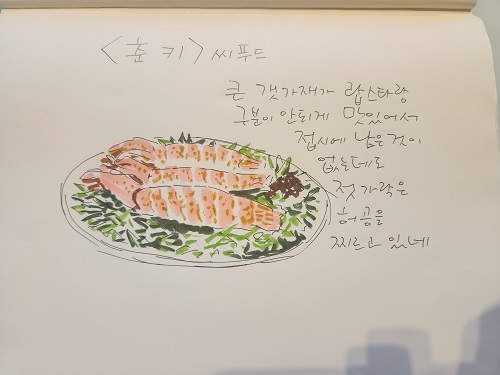 <춘 키> 씨푸드
큰 갯가재가 랍스타랑
구분이 안되게 맛있어서
접시에 남은것이
없는데도
젓가락은
허공을
찌르고 있네